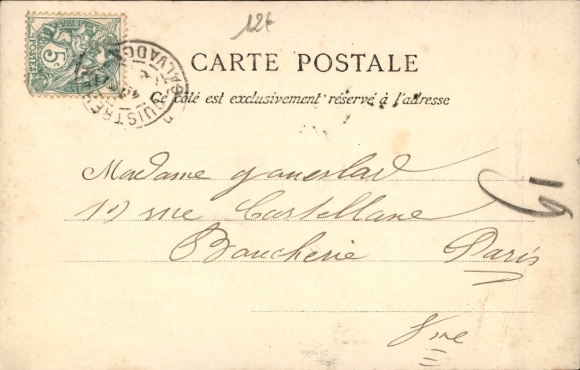 12€
POSTES 5c
OUISTREHAM CALVADOS
CARTE POSTALE
Ce côté est exclusivement réservé à l'adresse
Madame
17 rue Castellane
Boucherie Paris